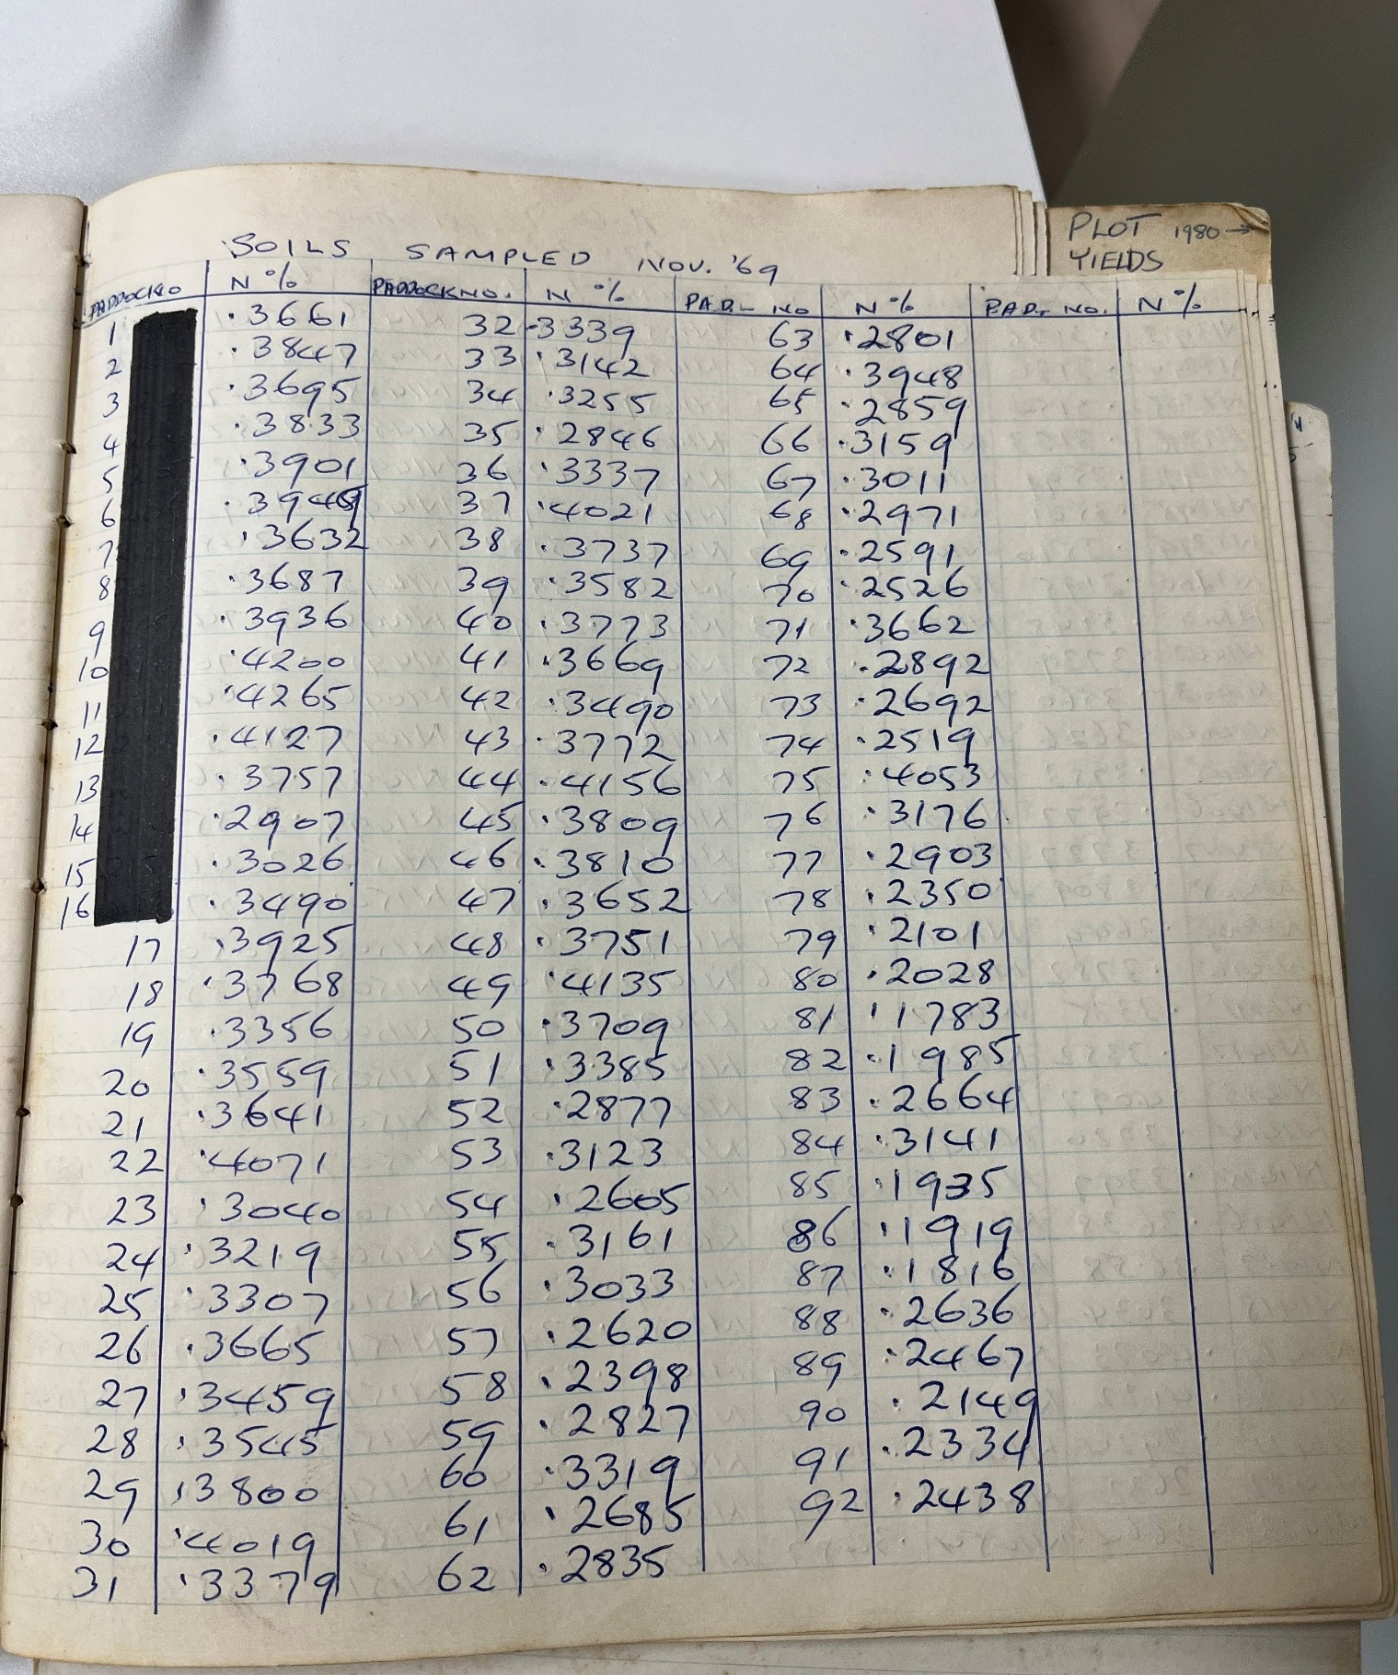 PLOT 1980→
YIELDS
SOILS SAMPLED NOV. '69
PADDOCK NO N % PADDOCK NO. N % PAD. NO N % PAD. NO. N %
1 .3661 32 .3339 63 .2801
2 .3847 33 .3142 64 .3948
3 .3695 34 .3255 65 .2859
4 .3833 35 .2846 66 .3159
5 .3901 36 .3337 67 .3011
6 37 .4021 68 .2971
7 .3632 38 .3737 69 .2591
8 .3687 39 .3582 70 .2526
9 .3936 40 .3773 71 .3662
10 .4200 41 .3669 72 .2892
11 .4265 42 .3490 73 .2692
12 .4127 43 .3772 74 .2519
13 .3757 44 .4156 75 .4053
14 .2907 45 .3809 76 .3176
15 .3026 46 .3810 77 .2903
16 .3490 47 .3652 78 .2350
17 .3925 48 .3751 79 .2101
18 .3768 49 .4135 80 .2028
19 .3356 50 .3709 81 .1783
20 .3559 51 .3385 82 .1985
21 .3641 52 .2877 83 .2664
22 .4071 53 .3123 84 .3141
23 .3040 54 .2605 85 .1935
24 .3219 55 .3161 86 .1919
25 .3307 56 .3033 87 .1816
26 .3665 57 .2620 88 .2636
27 .3459 58 .2398 89 .2467
28 .3545 59 .2827 90 .2149
29 .3800 60 .3319 91 .2334
30 .4019 61 .2685 92 .2438
31 .3379 62 .2835